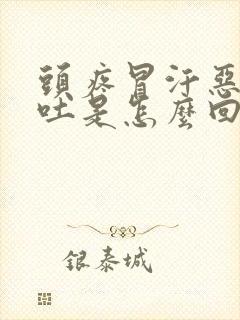 頭疼冒汗惡
吐是怎麼回
銀泰城